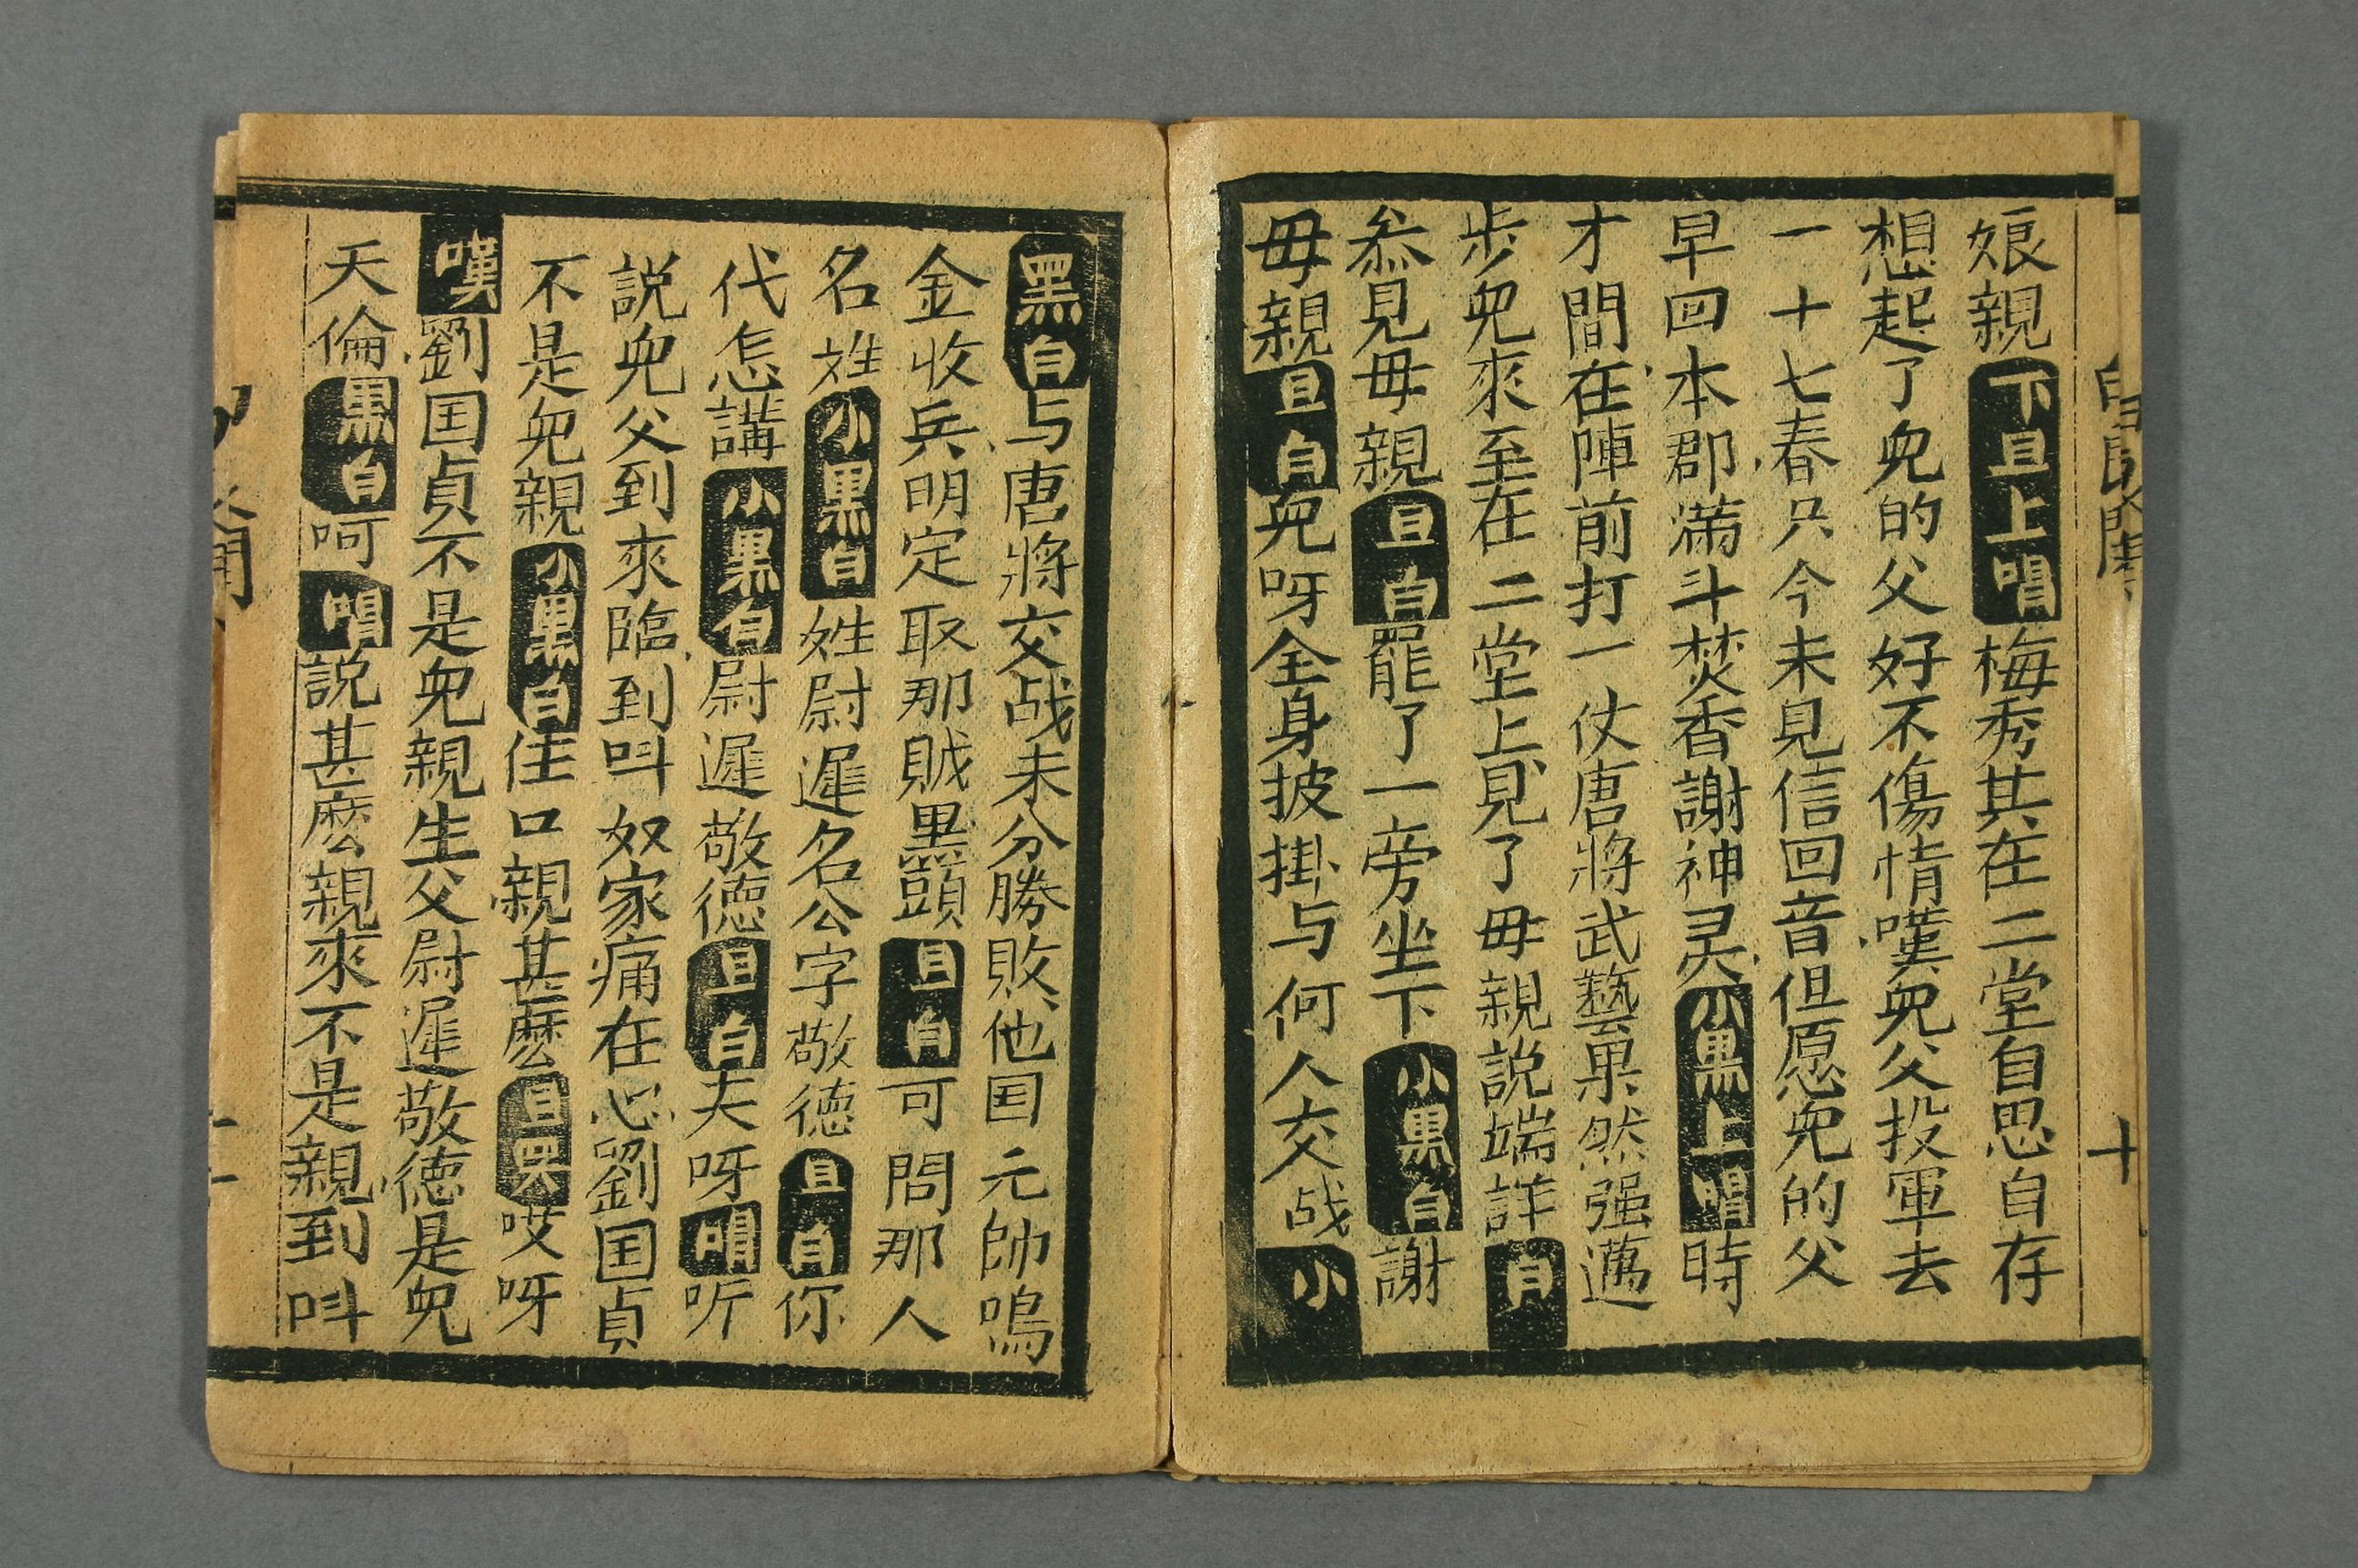 十
娘親下旦上唱梅秀其在二堂自思自存
想起了児的父好不傷情嘆児父投軍去
一十七春只今未見信回音但愿児的父
早回本郡滿斗焚香謝神灵小黒上唱時
才間在陣前打一仗唐將武藝果然强邁
步児來至在二堂上見了毋親説端詳白
叅見毋親旦白罷了一旁坐下小黒白謝
毋親旦白児呀全身披掛与何人交战小
黑白与唐將交战未分勝敗他国元帥鳴
金收兵明定取那賊黒頭旦白可問那人
名姓小黒白姓尉遲名公字敬徳旦白你
代怎講小黒白尉遲敬徳旦白夫呀唱听
説児父到來臨到呌奴家痛在心劉国貞
不是児親小黒白佳口親甚麽旦哭哎呀
嘆劉国貞不是児親生父尉遲敬徳是児
天倫黒白呵唱説甚麽親來不是親到呌